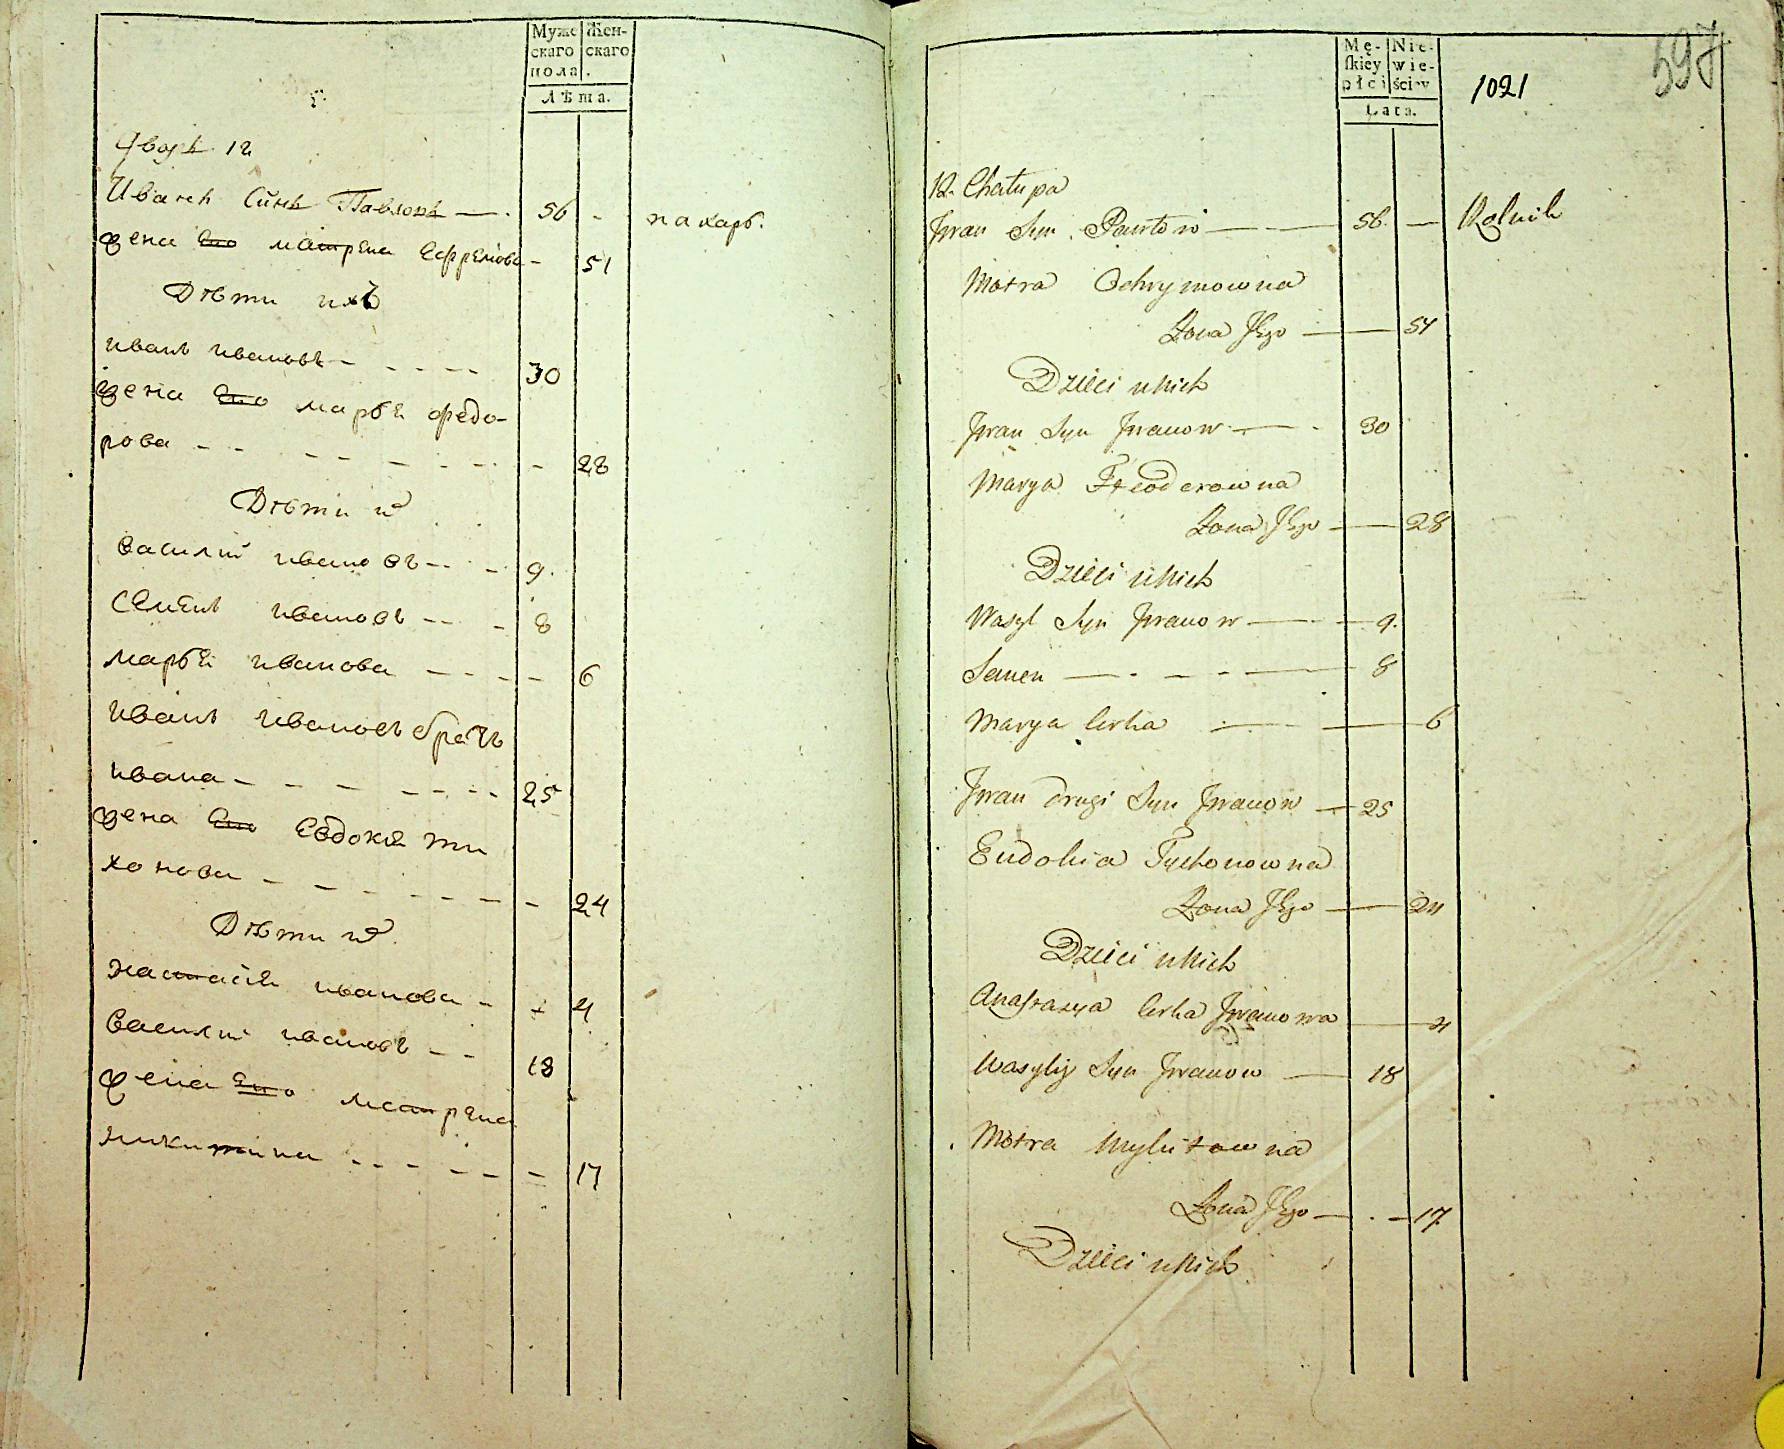 Муже Жен-
скаго скаго
пола .
Лѣта.
Дворъ 12
Иванъ Сынъ Павловъ — 56 -
пахарь.
жена Его матрена Ефремова - 51
Дѣти ихъ
иванъ ивановъ - - - - - 30
жена Его марья федо-
рова - - - - - - - - 28
Дѣти их
василий ивановъ - - - 9.
семенъ ивановъ - - - 8
марья иванова - - - - 6
иванъ ивановъ братъ
ивана - - - - - - - 25
жена Его Евдокия ти
хонова - - - - - - - - 24
Дѣти их
настасия иванова - + 4
василий ивановъ - - 18
жена Его матрена
никитина - - - - - - 17
Mę- Nie-
skiéy wie-
płci ściey
Lata.
1021
597
12. Chałupa
Jwan Syn Pawłow — 56. — Rolnik
Motra Ochrymowna
Żona Jego — 54
Dzieci u Nich
Jwan Syn Jwanow — 30
Marya Fteoderowna
Żona Jego — 28
Dzieci u Nich
Wasyl Syn Jwanow — 9.
Semen — 8
Marya Corka — 6
Jwan drugi Syn Jwanow — 25
Eudokia Tychonowna
Żona Jego — 24
Dzieci u Nich
Anastazya Corka Jwanowa — 4
Wasylij Syn Jwanow — 18
Motra Mykitowna
Żona Jego — 17.
Dzieci u Nich